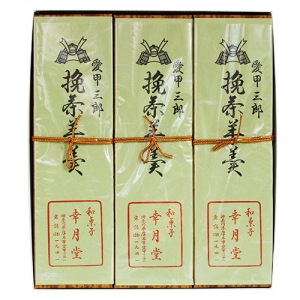 愛甲三郎
挽茶羊羹
和菓子
幸月堂
愛甲三郎
挽茶羊羹
和菓子
幸月堂
愛甲三郎
挽茶羊羹
和菓子
幸月堂